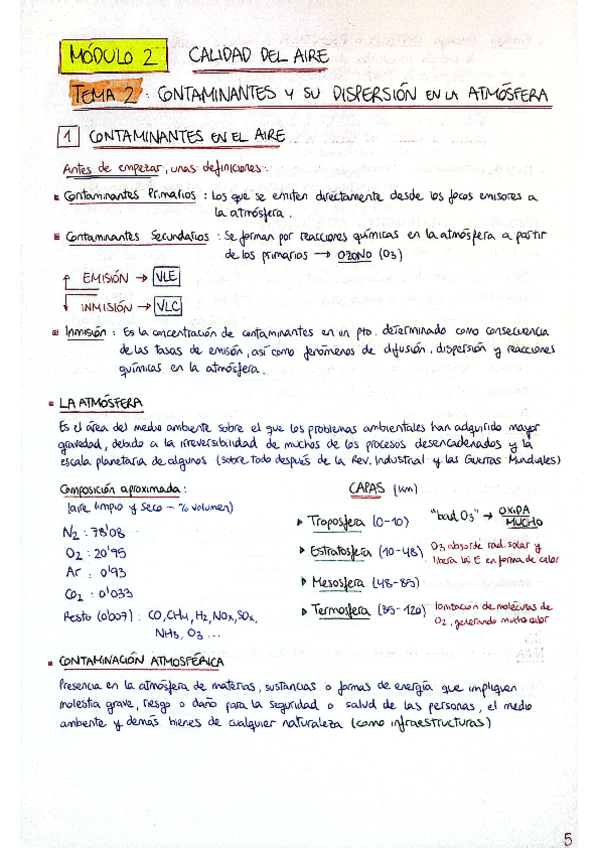 MÓDULO 2 CALIDAD DEL AIRE
TEMA 2: CONTAMINANTES Y SU DISPERSIÓN EN LA ATMÓSFERA
1 CONTAMINANTES EN EL AIRE
Antes de empezar, unas definiciones:
Contaminantes Primarios: Los que se emiten directamente desde los focos emisores a
la atmósfera.
Contaminantes Secundarios: Se forman por reacciones químicas en la atmósfera a partir
de los primarios → OZONO (O3)
EMISIÓN → VLE
INMISIÓN → VLC
Inmisión: Es la concentración de contaminantes en un pto. determinado como consecuencia
de las tasas de emisión, así como fenómenos de difusión, dispersión y reacciones
químicas en la atmósfera.
LA ATMÓSFERA
Es el área del medio ambiente sobre el que los problemas ambientales han adquirido mayor
gravedad, debido a la irreversibilidad de muchos de los procesos desencadenados y la
escala planetaria de algunos (sobre todo después de la Rev. Industrial y las Guerras Mundiales)
Composición aproximada:
(aire limpio y seco - % volumen)
N2: 78'08
O2: 20'95
Ar: 0'93
CO2: 0'033
Resto (0'007): CO, CH4, H2, NOx, SOx,
NH3, O3 ...
CAPAS (km)
Troposfera (0-10) "bad O3" → OXIDA
MUCHO
Estratosfera (10-48) O3 absorbe rad. solar y
libera la E en forma de calor
Mesosfera (48-85)
Termosfera (85-120) Ionización de moléculas de
O2, generando mucho calor
CONTAMINACIÓN ATMOSFÉRICA
Presencia en la atmósfera de materias, sustancias o formas de energía que impliquen
molestia grave, riesgo o daño para la seguridad o salud de las personas, el medio
ambiente y demás bienes de cualquier naturaleza (como infraestructuras)
5